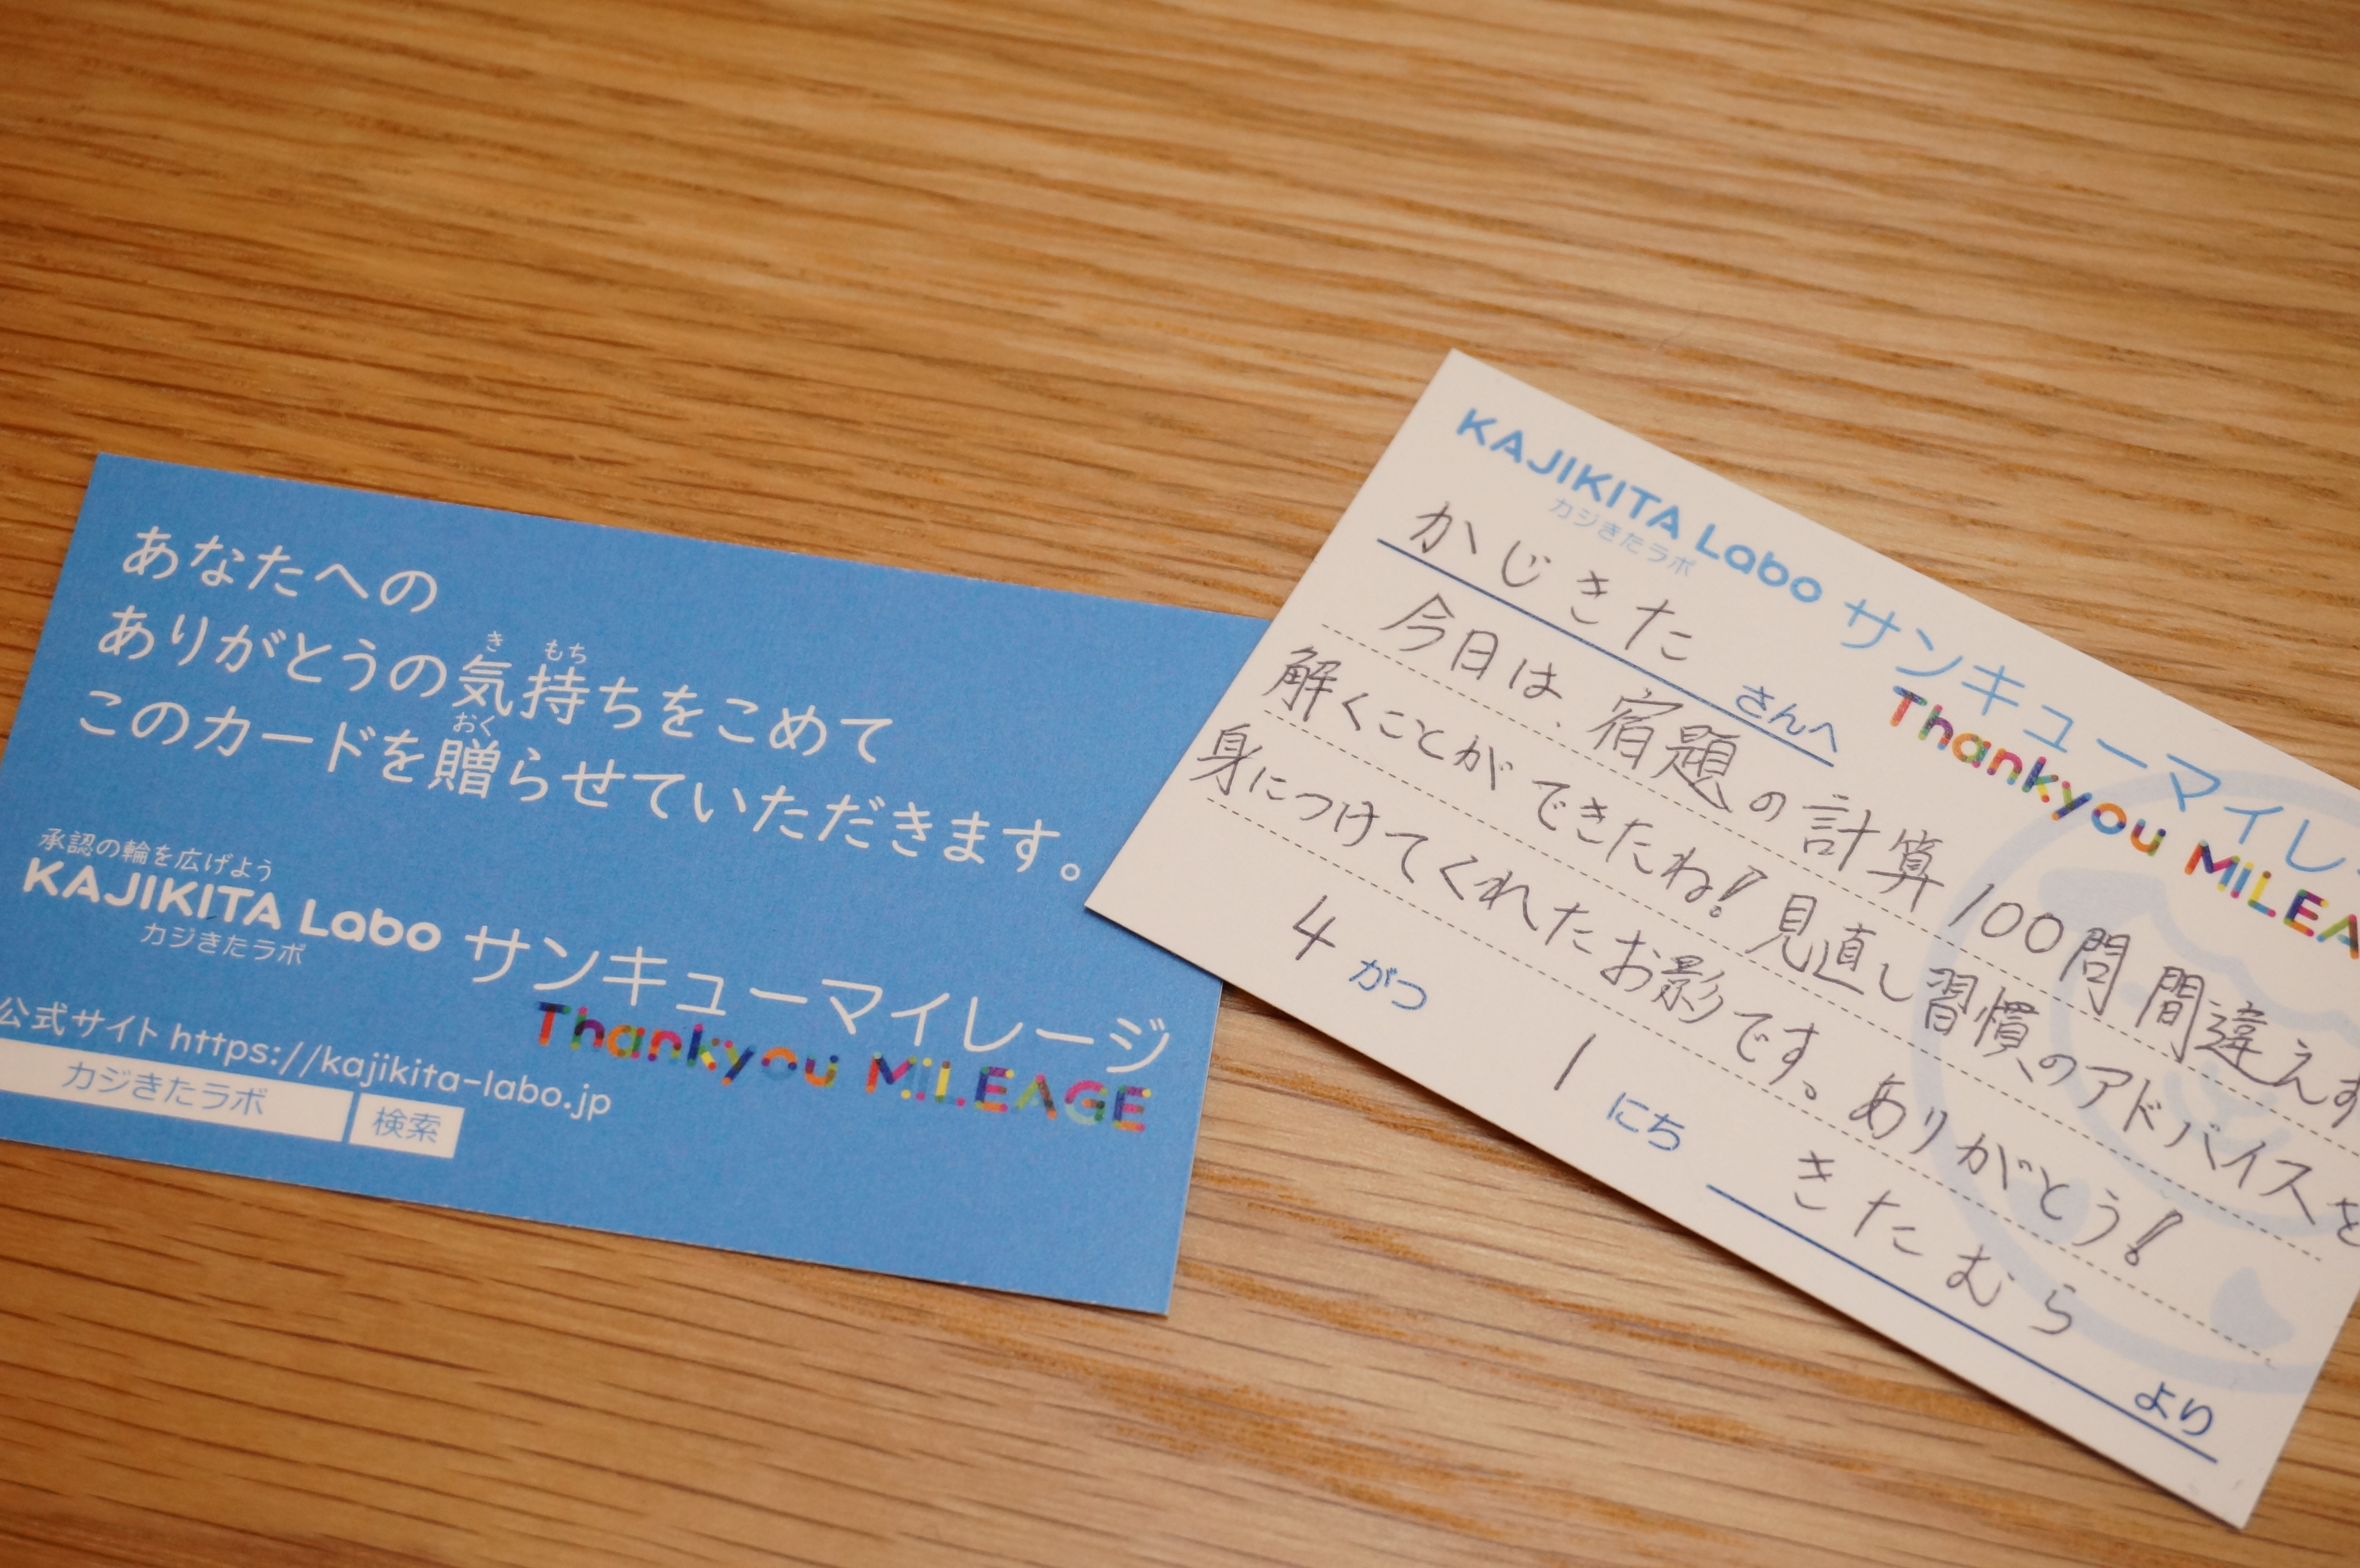 あなたへの
ありがとうの気持ちをこめて
き もち
このカードを贈らせていただきます。
おく
承認の輪を広げよう
KAJIKITA Labo サンキューマイレージ
カジきたラボ
Thankyou MiLEAGE
公式サイト https://kajikita-labo.jp
カジきたラボ 検索
KAJIKITA Labo サンキューマイレ
カジきたラボ
Thankyou MiLEA
かじきた さんへ
今日は、宿題の計算100問間違えず
解くことができたね!見直し習慣のアドバイスを
身につけてくれたお影です。ありがとう!
4 がつ 1 にち きたむら より